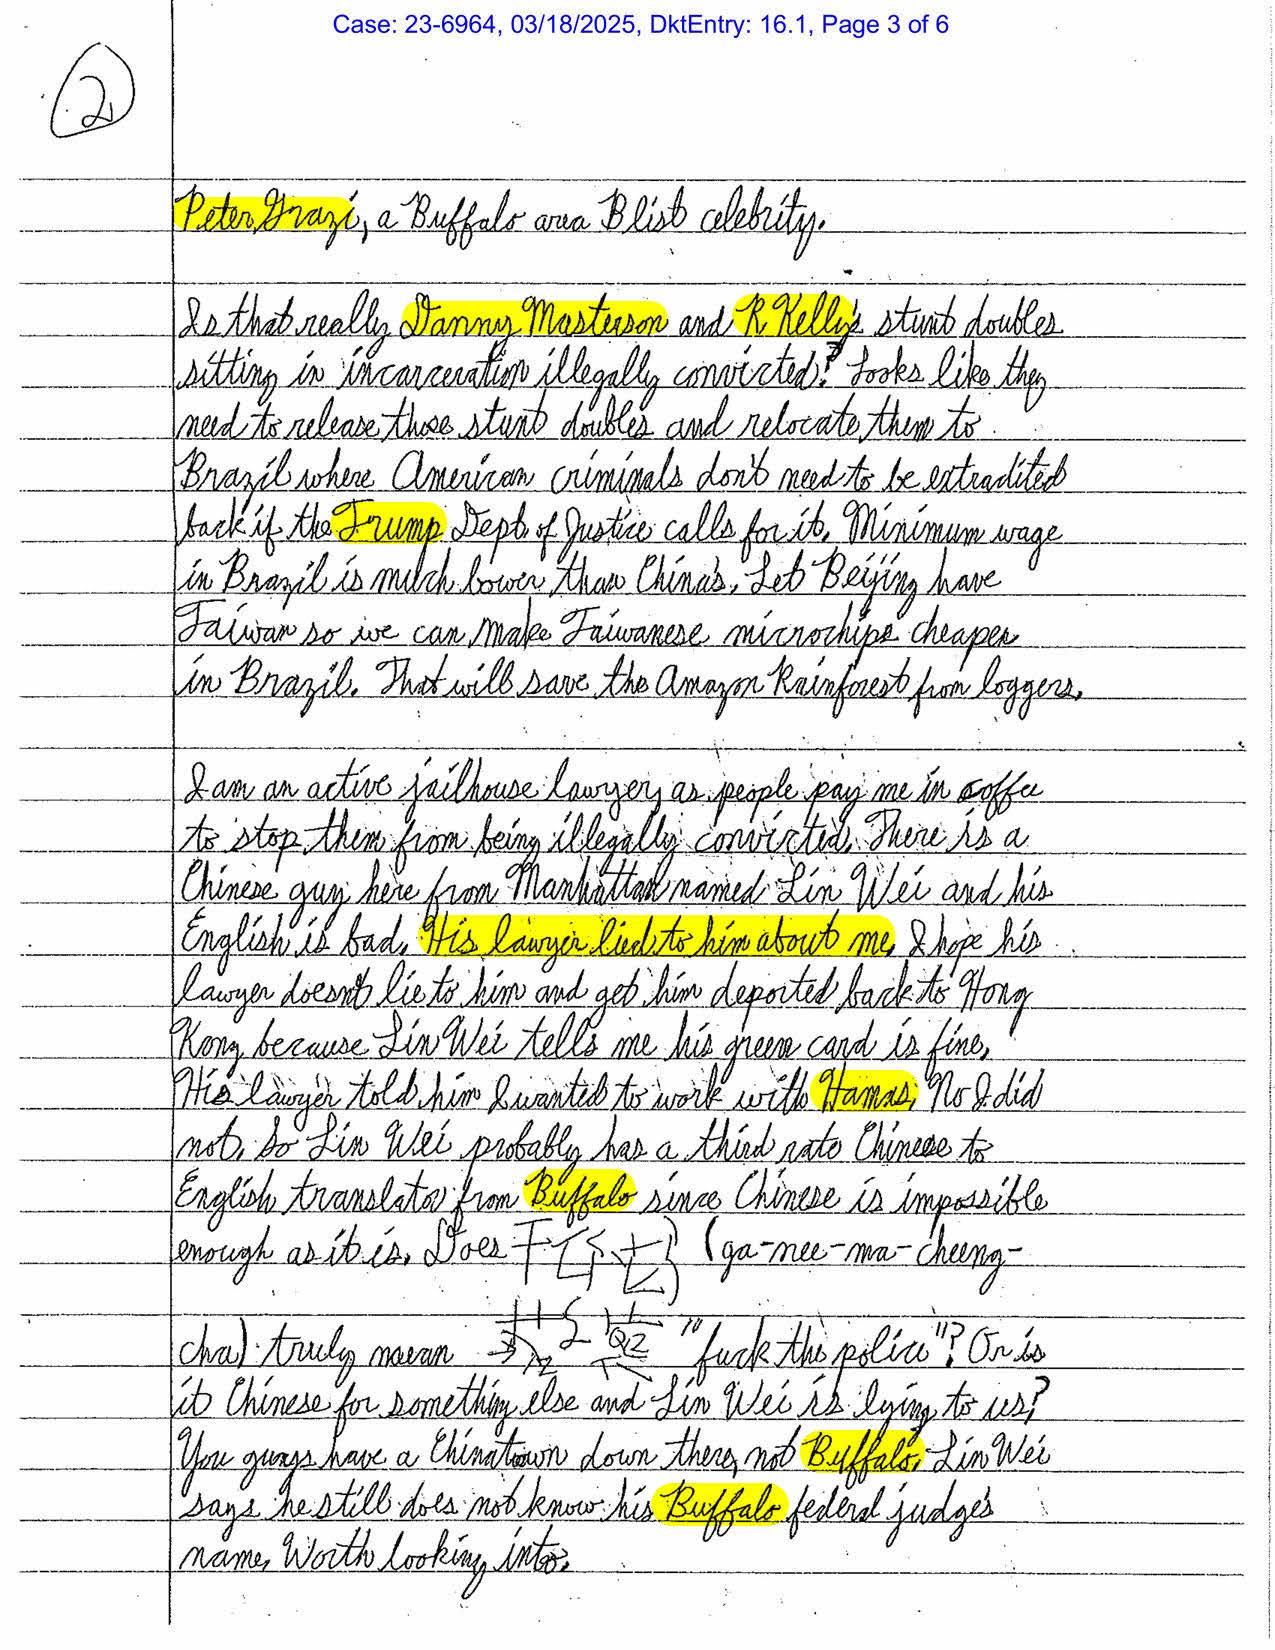 Case: 23-6964, 03/18/2025, DktEntry: 16.1, Page 3 of 6
2
Peter Grazi, a Buffalo area B list celebrity.
Is that really Danny Masterson and R Kelly's stunt doubles
sitting in incarceration illegally convicted? Looks like they
need to release those stunt doubles and relocate them to
Brazil where American criminals don't need to be extradited
back if the Trump Dept. of Justice calls for it. Minimum wage
in Brazil is much lower than China's. Let Beijing have
Taiwan so we can make Taiwanese microchips cheaper
in Brazil. That will save the Amazon Rainforest from loggers.
I am an active jailhouse lawyer, as people pay me in coffee
to stop them from being illegally convicted. There is a
Chinese guy here from Manhattan named Lin Wei and his
English is bad. His lawyer lied to him about me. I hope his
lawyer doesn't lie to him and get him deported back to Hong
Kong because Lin Wei tells me his green card is fine.
His lawyer told him I wanted to work with Hamas. No I did
not. So Lin Wei probably has a third rate Chinese to
English translator from Buffalo since Chinese is impossible
enough as it is. Does (ga-nee-ma-cheeng-
cha) truly mean "fuck the police"? Or is
it Chinese for something else and Lin Wei is lying to us?
You guys have a Chinatown down there, not Buffalo. Lin Wei
says he still does not know his Buffalo federal judge's
name. Worth looking into.